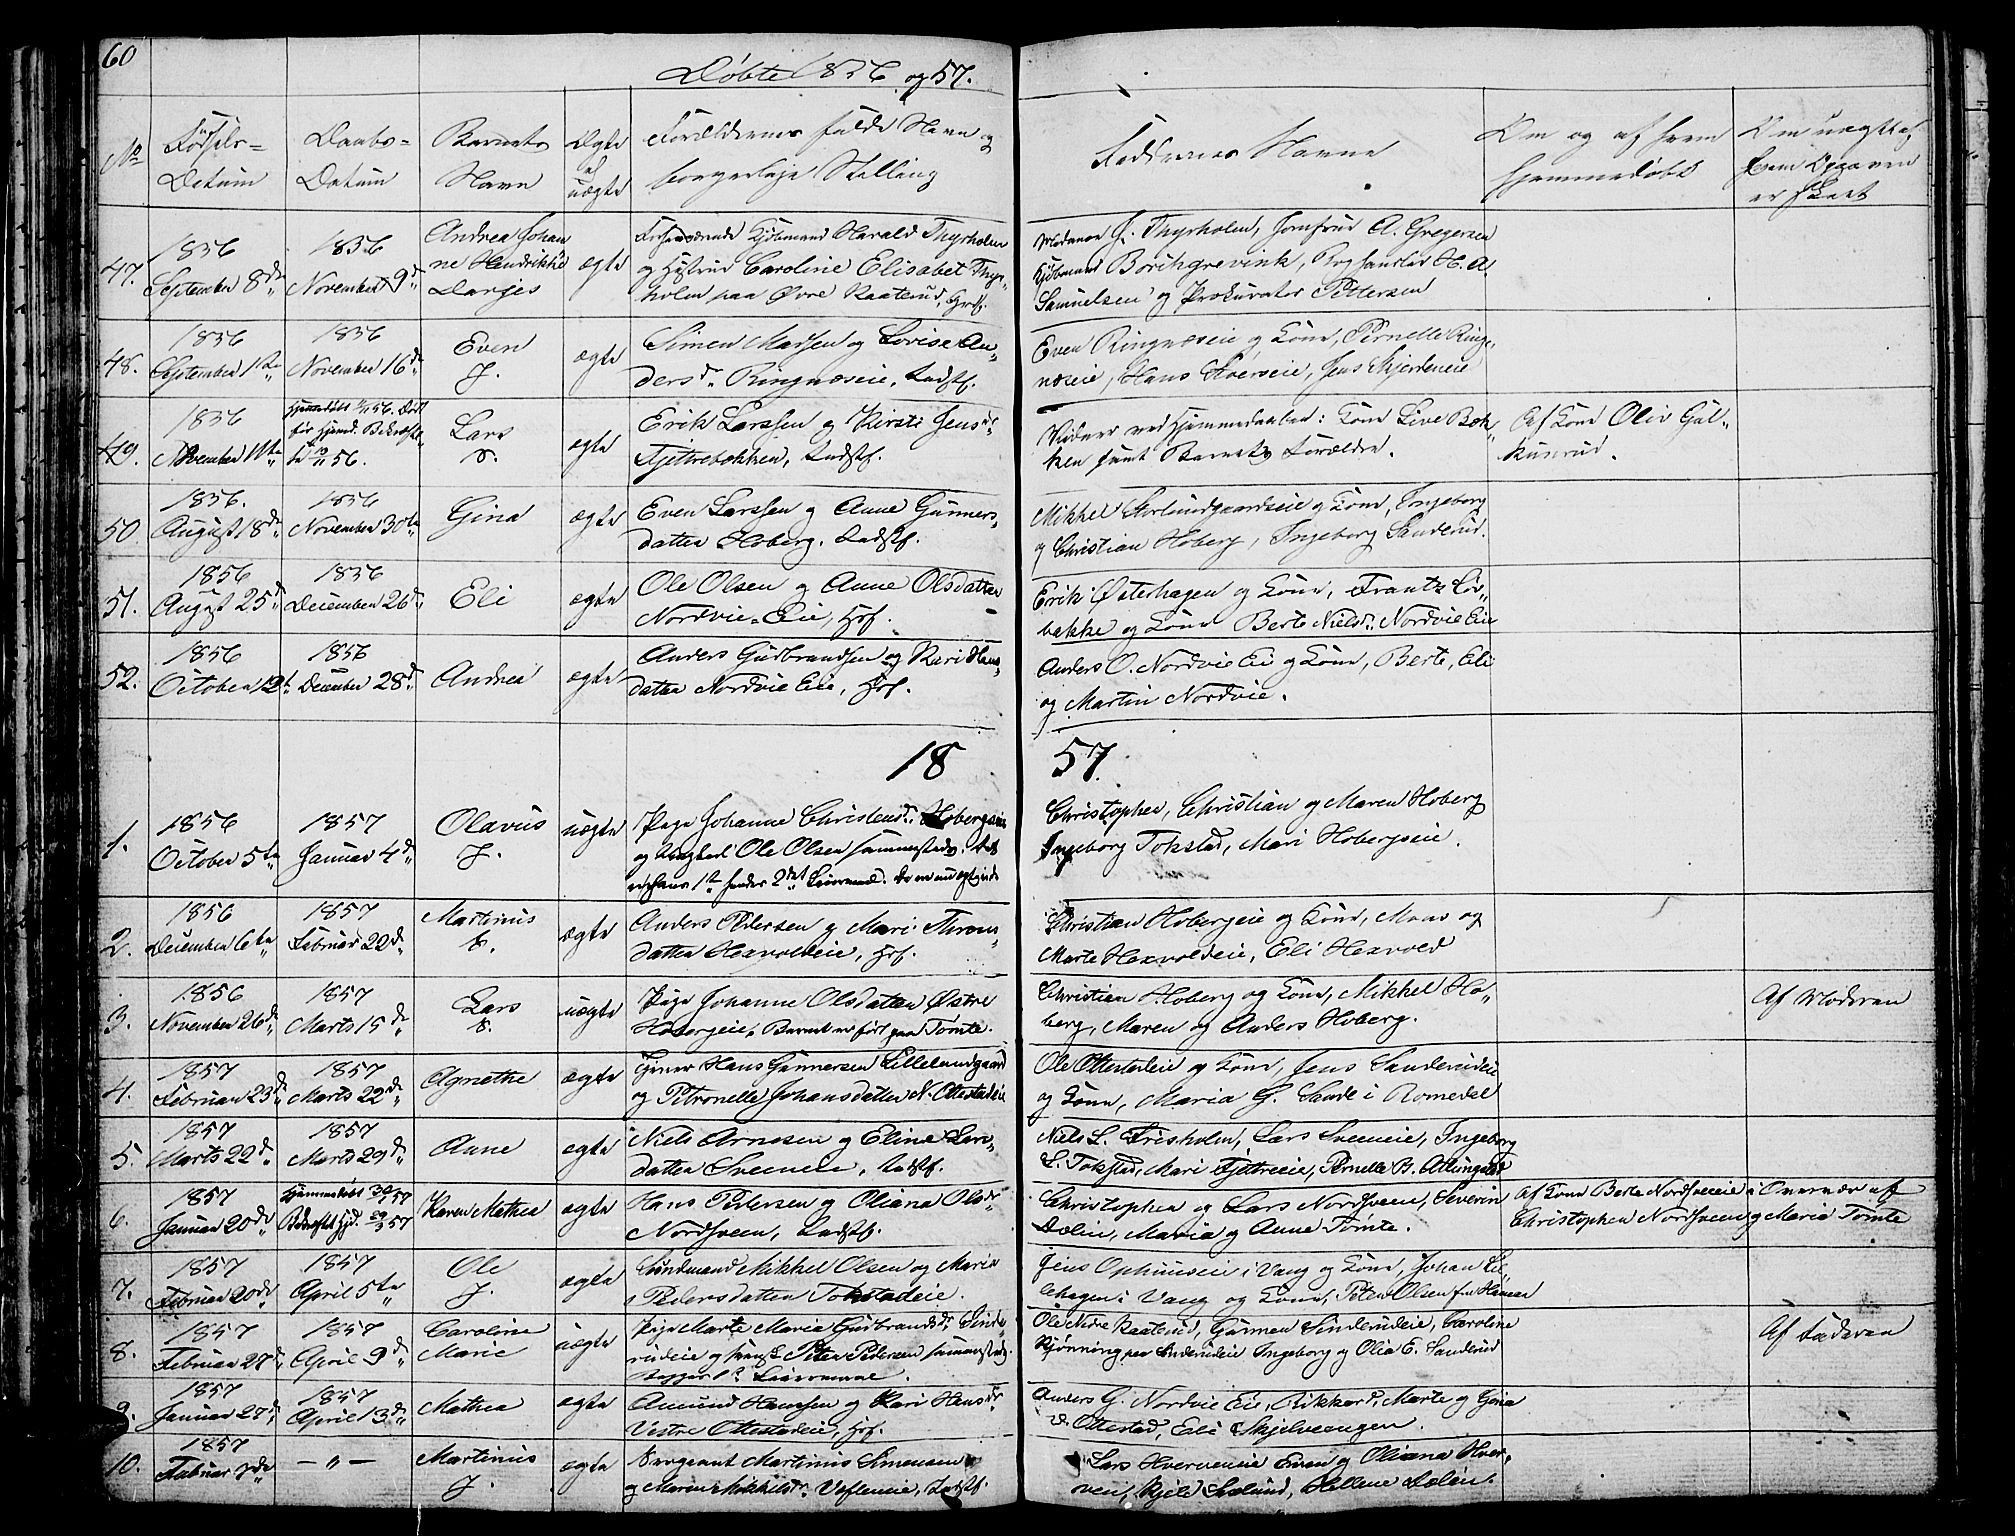 60
Døbte 1856 og 57.
No
Fødsels-
Datum
Daabs-
Datum
Barnets
Navn
Ægte
el
uægte
Forældrenes fulde Navn og
borgerlige Stilling
Faddernes Navne
Om og af hvem
hjemmedøbt
Om uægte af
hvem Opgaven
er skeet
47.
1856
September 8de
1856
November 9de
Andrea Johan
ne Hendrikke
Darjes
ægte
Kjøbmand Harald Thyrholm
og Hustrue Caroline Elisabet Thyr-
holm paa Øvre Kaaterud, Grf.
Madame J. Thyrholm, Jomfrue A. Gregersen
Kjøbmand Borchgrevink, H. A.
Samuelsen og Prokurator Pettersen
48.
1856
September 1ste
1856
November 16de
Even
J.
ægte
Simen Madsen og Lovise An-
dersd. Ringnæseie, Indst.
Even Ringnæseie og Kone, Pernelle Ring-
næseie, Hans Sverseie, Jens Skjerdeneie
49.
1856
November 11te
Hjemmedøbt 11/11 56. Død
før Hjemd. Bekræftel
se 19/11 56.
Lars
v.
ægte
Erik Larssen og Kirsti Jensdr
Fjettrebakken, Indst.
Vidner ved Hjemmedaaben: Kone Live Bak-
ken samt Barnets Forældre.
Af Kone Oliv Gul-
kunrud.
50.
1856.
August 18de
1856
November 30te
Gina
ægte
Even Larssen og Anne Gunners-
datter Hoberg. Indst.
Mikkel Storlundgaardseie og Kone, Ingeborg
og Christian Hoberg, Ingeborg Sanderud.
51.
1856
August 25de
1856
December 26de
Eli
ægte
Ole Olsen og Anne Olsdatter
Nordvie-Eie, Hsf.
Erik Østerhagen og Kone, Frantz Løv-
bakke og Kone Berte Nielsd. Nordvie Eie
52.
1856
October 12te
1856
December 28de
Andrea
ægte
Anders Gudbrandsen og Kari Hans-
datter Nordvie Eie, Hsf.
Anders O. Nordvie Eie og Kone, Berte, Eli
og Martin Nordvie.
18 57.
1.
1856
October 5te
1857
Januar 4de
Olavus
J.
uægte
Pige Johanne Christensd. Hobergseie
og Ungkarl Ole Olsen sammesteds.
hans 1ste hendes 2det Leiermaal.
Christopher, Christian og Maren Hoberg
Ingeborg Tokstad, Mari Hobergseie.
2.
1856
December 6te
1857
Februar 22de
Martinus
v.
ægte
Anders Pedersen og Mari Throns-
datter Hexvoldeie, Hsf.
Christian Hobergeie og Kone, Mons og
Marte Hexvoldeie, Eli Hexvold
3.
1856
November 26de
1857
Marts 15de
Lars
v.
uægte
Pige Johanne Olsdatter Østre
Hobergeie. Barnet er født paa Tomte.
Christian Hoberg og Kone, Mikkel Ho-
berg, Maren og Anders Hoberg.
Af Moderen
4.
1857
Februar 23de
1857
Marts 22de
Agnethe
ægte
Tjener Hans Gunnersen Lillelundgaard
og Petronelle Johansdatter N. Ottestadeie
Ole Ottestadeie og Kone, Jens Sanderudeie
og Kone, Maria G. Sande i Romedal
5.
1857
Marts 22de
1857
Marts 29de
Anne
ægte
Niels Arnesen og Eline Lars-
datter Sveeneie, Indst.
Niels L. Frisholm, Lars Sveeneie, Ingeborg
L. Tokstad, Mari Fjettreeie, Pernelle B. Atlungstad
6.
1857
Januar 20de
Hjemmedøbt 30/1 57
Bekræftet Hjd. 29/3 57
Karen Mathea
ægte
Hans Pedersen og Oliana Olsdr
Nordsveen, Indst.
Christopher og Lars Nordsveen, Severin
Dølin, Maria og Anne Tomte.
Af Kone Berte Nordsveeneie i Overvær af
Christopher Nordsveen og Maria Tomte
7.
1857
Februar 20de
1857
April 5te
Ole
J.
ægte
Landmand Mikkel Olsen og Maria
Pedersdatter Tokstadeie.
Jens Ophuuseie i Vang og Kone, Johan Lil-
lehagen i Vang og Kone, Peter Olsen fra Hamar
8.
1857
Februar 27de
1857
April 9de
Caroline
Marie
uægte
Pige Marte Maria Gudbrandsdr Sande-
rudeie og Peter Pedersen sammesteds.
Begges 1ste Leiermaal.
Ole Nedre Kaaterud, Gunnar Sanderudeie, Caroline
Kjønning paa Sanderudeie Ingeborg og Olia E. Sanderud
Af Faderen
9.
1857
Januar 27de
1857
April 13de
Mathea
ægte
Amund Hanssen og Kari Hansdr
Vestre Ottestadeie, Hsf.
Anders G. Nordvie Eie, Rikkard, Marte og Gina
V. Ottestad, Eli Skjelveengen.
10.
1857
Februar 7de
— " —
Martinus
J.
ægte
Sergeant Martinus Simensen
og Maren Mikkelsdr. Vesleneie, Indst.
Lars Hverveneie Even og Oliana Hver-
ven, Kjeld Sælund, Hellene Dølen.